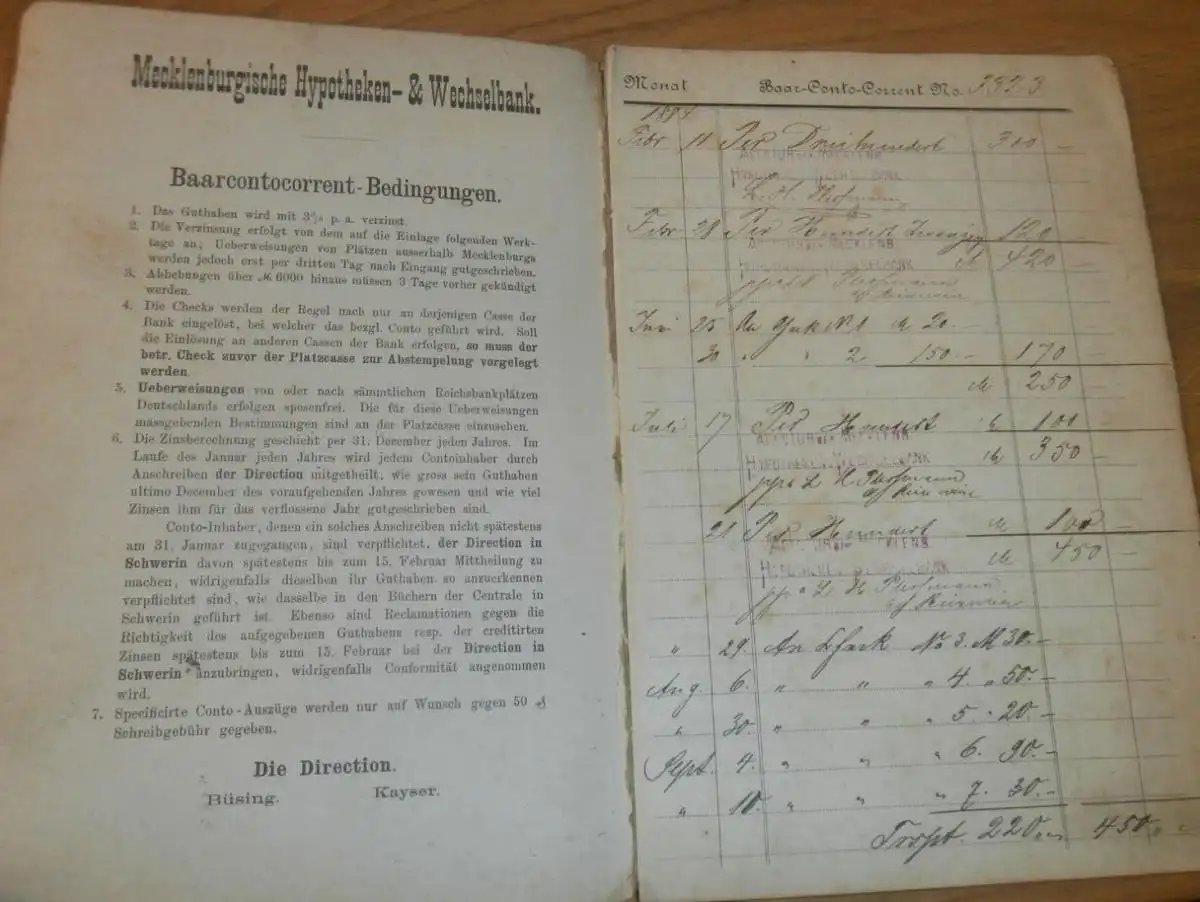 Mecklenburgische Hypotheken- & Wechselbank.
Baarcontocorrent-Bedingungen.
1. Das Guthaben wird mit 3% p. a. verzinst.
2. Die Verzinsung erfolgt von dem auf die Einlage folgenden Werk-
tage an; Ueberweisungen von Plätzen ausserhalb Mecklenburgs
werden jedoch erst per dritten Tag nach Eingang gutgeschrieben.
3. Abhebungen über ℳ 6000 hinaus müssen 3 Tage vorher gekündigt
werden.
4. Die Checks werden der Regel nach nur an derjenigen Casse der
Bank eingelöst, bei welcher das bezgl. Conto geführt wird. Soll
die Einlösung an anderen Cassen der Bank erfolgen, so muss der
betr. Check zuvor der Platzcasse zur Abstempelung vorgelegt
werden.
5. Ueberweisungen von oder nach sämmtlichen Reichsbankplätzen
Deutschlands erfolgen spesenfrei. Die für diese Ueberweisungen
massgebenden Bestimmungen sind an der Platzcasse einzusehen.
6. Die Zinsberechnung geschieht per 31. December jeden Jahres. Im
Laufe des Januar jeden Jahres wird jedem Contoinhaber durch
Anschreiben der Direction mitgetheilt, wie gross sein Guthaben
ultimo December des voraufgehenden Jahres gewesen und wie viel
Zinsen ihm für das verflossene Jahr gutgeschrieben sind.
Conto-Inhaber, denen ein solches Anschreiben nicht spätestens
am 31. Januar zugegangen, sind verpflichtet, der Direction in
Schwerin davon spätestens bis zum 15. Februar Mittheilung zu
machen, widrigenfalls dieselben ihr Guthaben so anzuerkennen
verpflichtet sind, wie dasselbe in den Büchern der Centrale in
Schwerin geführt ist. Ebenso sind Reclamationen gegen die
Richtigkeit des aufgegebenen Guthabens resp. der creditirten
Zinsen spätestens bis zum 15. Februar bei der Direction in
Schwerin anzubringen, widrigenfalls Conformität angenommen
wird.
7. Specificirte Conto-Auszüge werden nur auf Wunsch gegen 50 ₰
Schreibgebühr gegeben.
Die Direction.
Büsing. Kayser.
Monat Baar-Conto-Corrent No. 2523
Febr 11 Per Dreihundert 300 –
Febr 28 Per Hundert Zwanzig 120
420
Juni 25 No 1 M 20.–
30 " " 2 150.– 170 –
M 250
Juli 17 Per Hundert M 100
M 350 –
21 Per Hundert M 100
M 450 –
" 29. An No 3. M 30.–
Aug. 6. " " " 4. " 50.–
" 30. " " " 5. " 20.–
Sept. 4. " " " 6. 90.–
" 10. " " " 7. 30.–
Trspt. 220 450